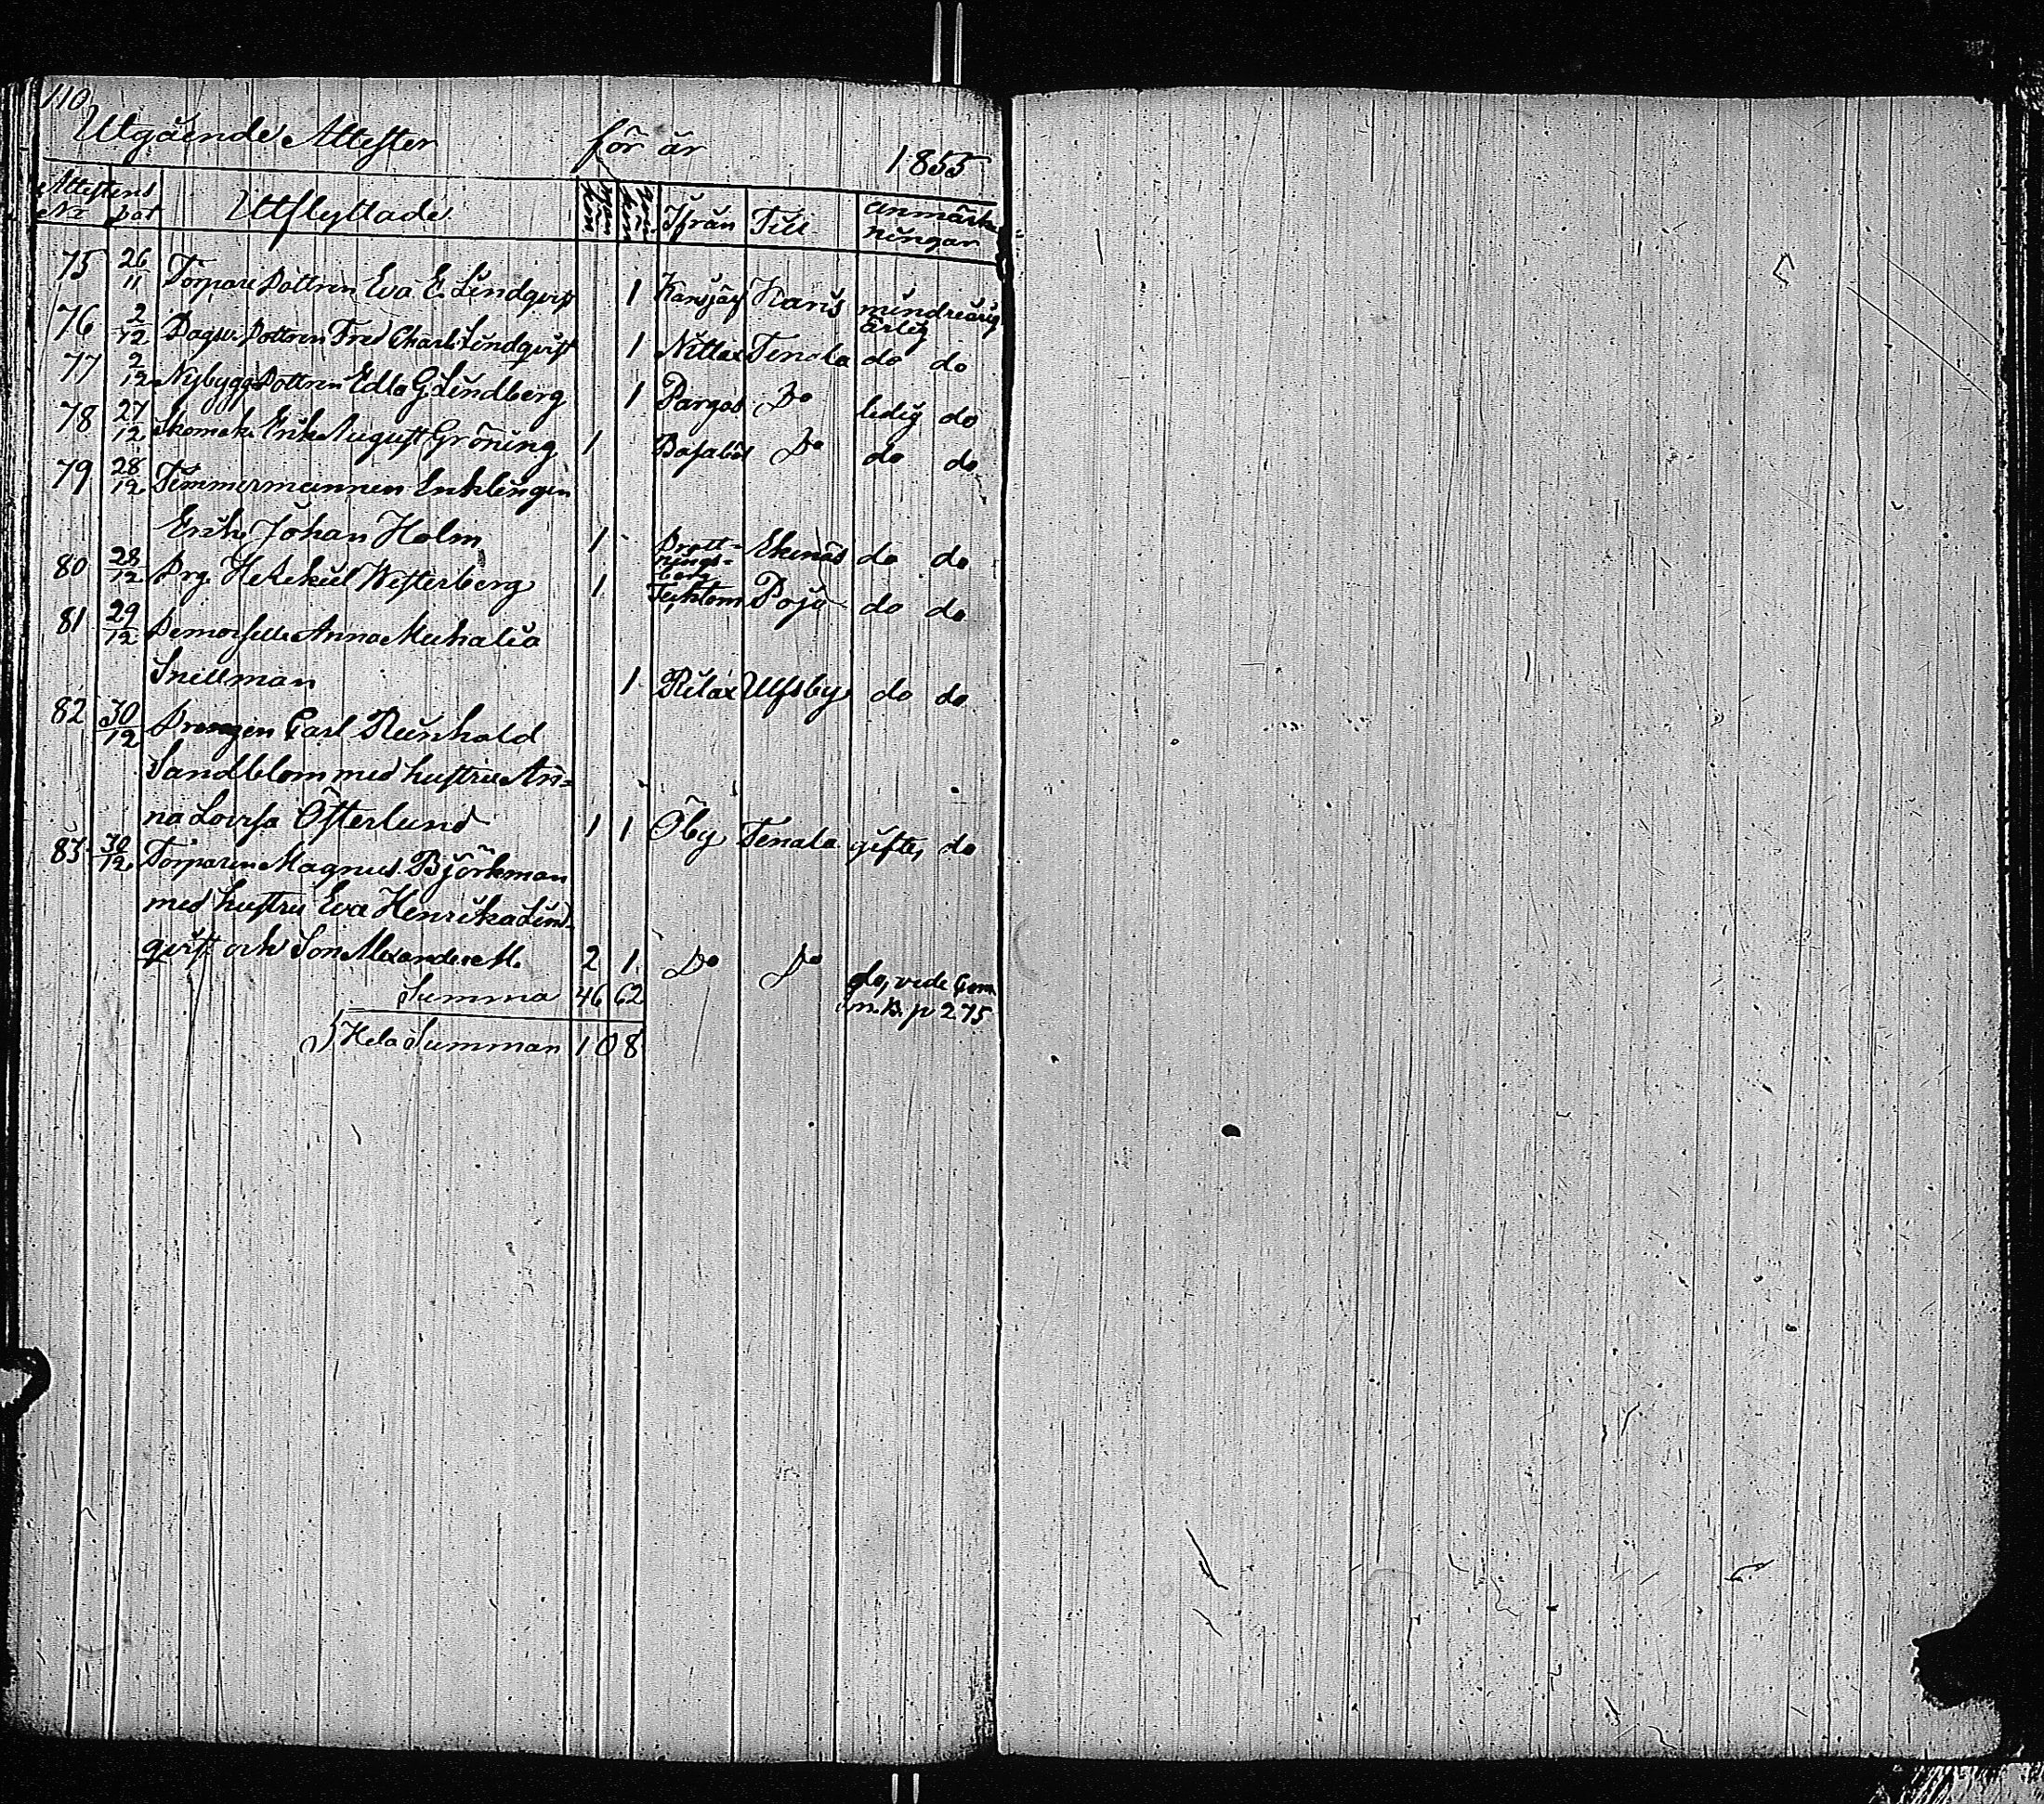 110
Utgående Attester för år 1855
Attestens
No dat Utflyttade Mankön Qvinkön Ifrån Till Anmärkningar
75 26/11 Torpare Dottren Eva E. Lindqvist 1 Karsjäy Karis minderårig
ärlig
76 2/12 Dagsv. Dottren Fred Charl. Lindqvist 1 Nitlax Tenala do do
77 2/12 Nybygg. Dottren Edla G. Lindberg 1 Pargas Do ledig do
78 27/12 Skomak. Erik August Gröning 1 Basaböl Do do do
79 28/12 Timmermannen Enklingen
Erik Johan Holm 1 Drott= Ekenäs do do
nings=
berg
80 28/12 Drg. Hesekiel Westerberg 1 Tecktom Pojo do do
81 29/12 Demoiselle Anna Michalia
Snellman 1 Rilax Ulfsby do do
82 30/12 Drengen Carl Reinhold
Sandblom med hustru An=
na Lovisa Österlund 1 1 Öby Tenala gifte, do
83 30/12 Torparen Magnus Björkman
med hustru Eva Henrika Lind=
qvist och Son Alexander M. 2 1 Do Do do, vide Com
Summa 46 62 m.B. p 275
Hela Summan 108